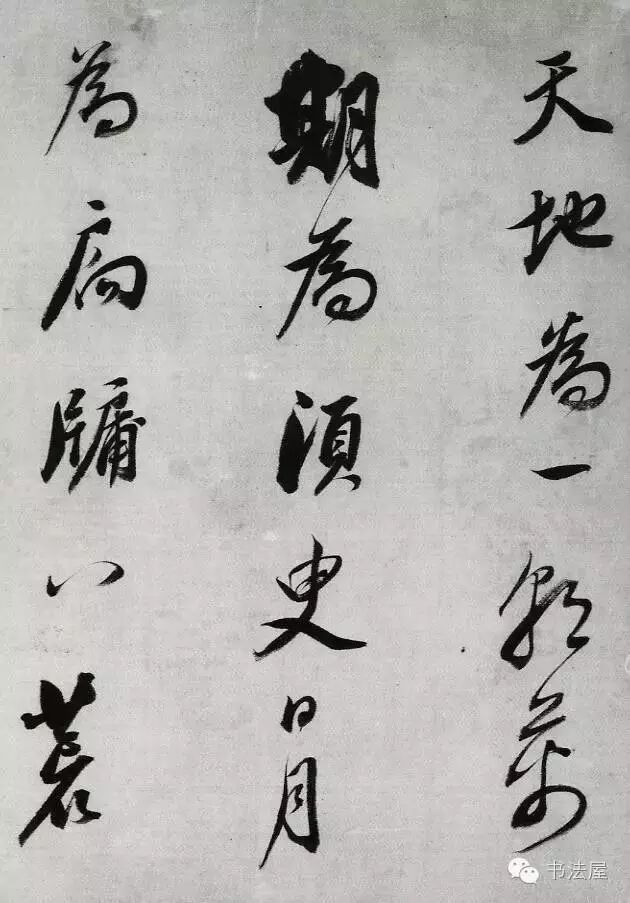 天地為一朝萬
期為須臾日月
為扃牖八荒
书法屋